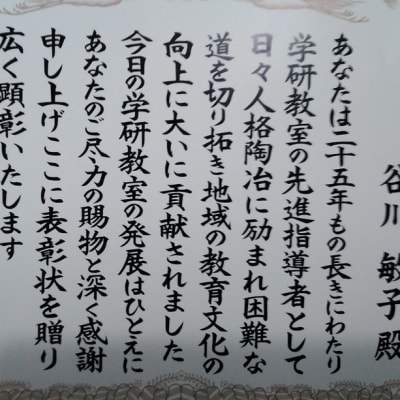 谷川 敏子殿
あなたは二十五年もの長きにわたり
学研教室の先進指導者として
日々人格陶冶に励まれ困難な
道を切り拓き地域の教育文化の
向上に大いに貢献されました
今日の学研教室の発展はひとえに
あなたのご尽力の賜物と深く感謝
申し上げここに表彰状を贈り
広く顕彰いたします